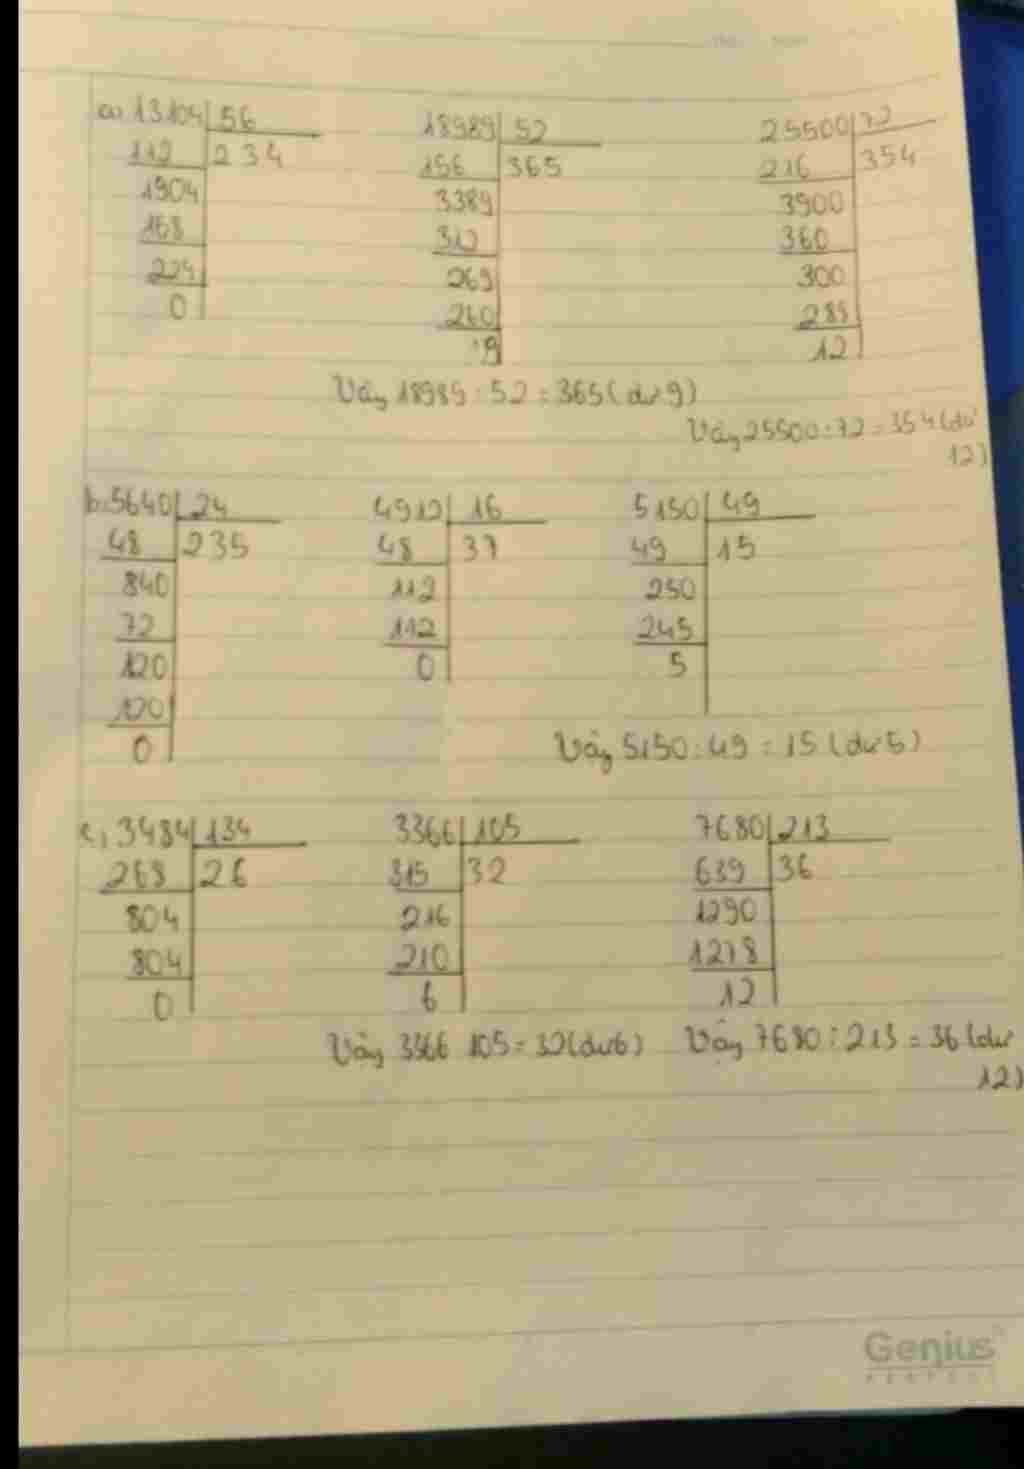 a, 13104 56 18989 52 25500 72
112 234 156 365 216 354
1904 3389 3900
168 312 360
224 269 300
0 260 288
9 12
Vậy 18989 : 52 = 365 (dư 9)
Vậy 25500 : 72 = 354 (dư
12)
b, 5640 24 4912 16 5150 49
48 235 48 37 49 15
840 112 250
72 112 245
120 0 5
120
0
Vậy 5150 : 49 = 15 (dư 5)
c, 3484 134 3366 105 7680 213
268 26 315 32 639 36
804 216 1290
804 210 1278
0 6 12
Vậy 3366 105 = 32 (dư 6) Vậy 7680 : 213 = 36 (dư
12)
Genius